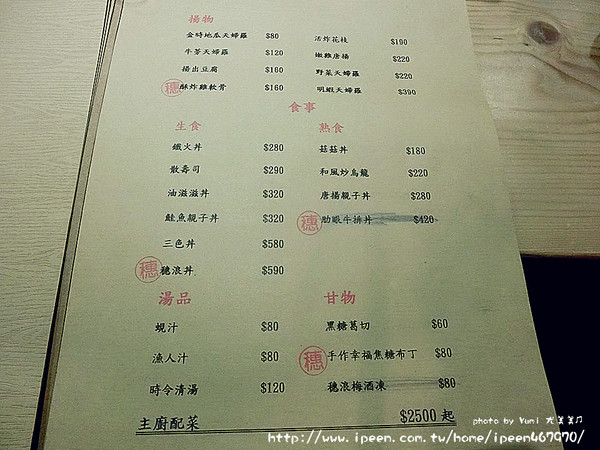 揚物
金時地瓜天婦羅 $80
活炸花枝 $190
牛蒡天婦羅 $120
嫩雞唐揚 $220
揚出豆腐 $160
野菜天婦羅 $220
穗 酥炸雞軟骨 $160
明蝦天婦羅 $390
食事
生食
鐵火丼 $280
散壽司 $290
油滋滋丼 $320
鮭魚親子丼 $320
三色丼 $580
穗 穗浪丼 $590
熟食
菇菇丼 $180
和風炒烏龍 $220
唐揚親子丼 $280
穗 肋眼牛排丼 $420
湯品
蜆汁 $80
漁人汁 $80
時令清湯 $120
甘物
黑糖葛切 $60
穗 手作幸福焦糖布丁 $80
穗浪梅酒凍 $80
主廚配菜 $2500 起
photo by Yuni
http://www.ipeen.com.tw/home/ipeen467970/